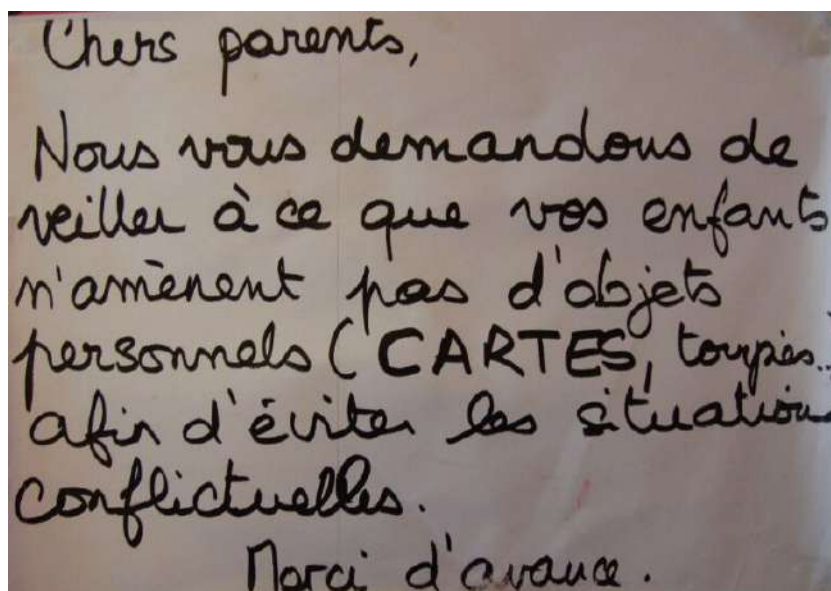 Chers parents,
Nous vous demandons de
veiller à ce que vos enfants
n'amènent pas d'objets
personnels (CARTES, toupies..
afin d'éviter les situations
conflictuelles.
Merci d'avance.